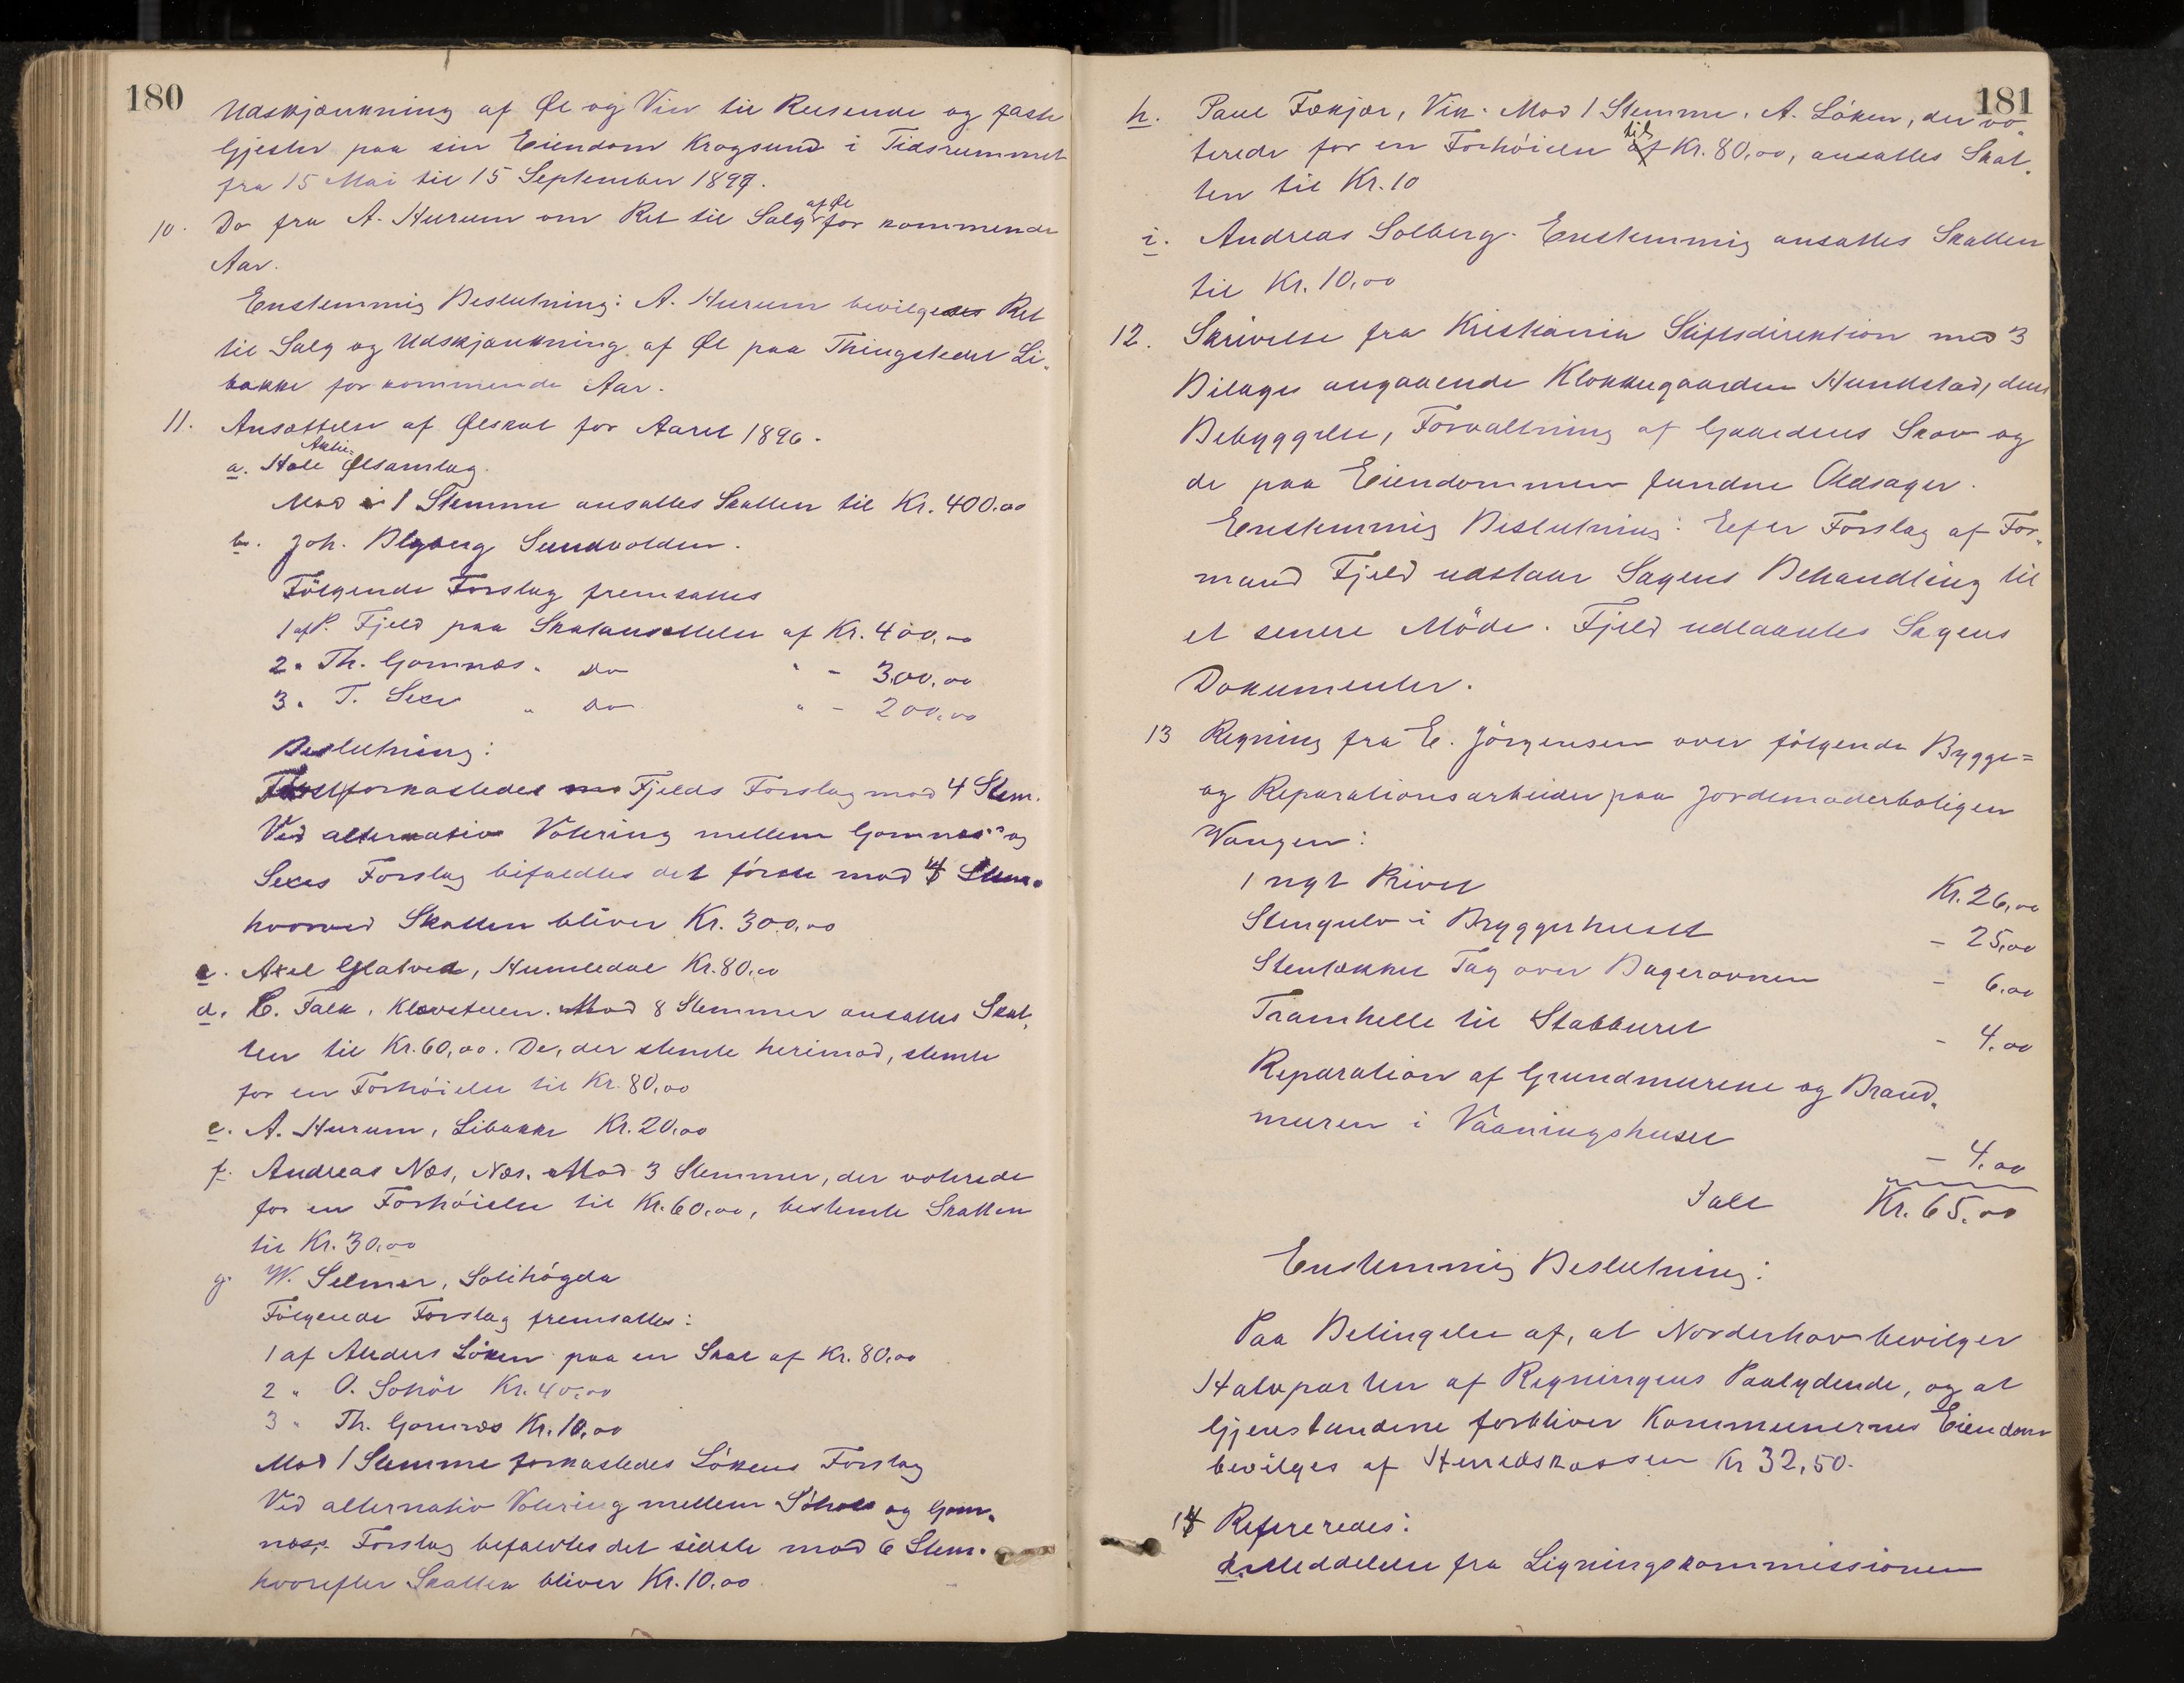 180
Udskjænkning af Øl og Vin til Reisende og faste
Gjester paa sin Eiendom Krogsund i Tidsrummet
fra 15 Mai til 15 September 1897.
10. Do fra A. Hurum om Ret til Salg af Øl for kommende
Aar.
Enstemmig Beslutning: A. Hurum bevilges Ret
til Salg og Udskjænkning af Øl paa Thingstedet Li-
bakke for kommende Aar.
11. Ansættelse af Ølskat for Aaret 1896.
a. Hole Aktie Ølsamlag.
Mod 1 Stemme ansattes Skatten til Kr. 400.00
b. Joh. Blyberg Sundvolden.
Følgende Forslag fremsattes
1 af P. Fjeld paa Skatansættelse af Kr. 400,00
2 " Th. Gomnæs " Do " - 300,00
3 " T. Sexe " Do " - 200,00
Beslutning:
forkastedes Fjelds Forslag mod 4 Stem.
Ved alternativ Votering mellem Gomnæs' og
Sexes Forslag bifaldtes det første mod 4 Stem.
hvorved Skatten bliver Kr. 300,00
c. Axel Glatved, Humledal Kr. 80,00
d. C. Falk, Kleivstuen. Mod 8 Stemmer ansattes Skat-
ten til Kr. 60,00. De, der stemte herimod, stemte
for en Forhøielse til Kr. 80,00
e. A. Hurum, Libakke Kr. 20,00
f. Andreas Næs, Næs. Mod 3 Stemmer, der voterede
for en Forhøielse til Kr. 60,00, bestemtes Skatten
til Kr. 30,00
g. W. Selmer, Solihøgda
Følgende Forslag fremsattes:
1 af Anders Løken paa en Skat af Kr. 80,00
2 " O. Sohøl Kr. 40,00
3 " Th. Gomnæs Kr. 10,00
Mod 1 Stemme forkastedes Løkens Forslag
Ved alternativ Votering mellem Søhols og Gom-
næss. Forslag befaldtes det sidste mod 6 Stem.
hvorefter Skatten bliver Kr. 10,00
181
h. Paul Fækjær, Vik. Mod 1 Stemme, A. Løken, der vo-
terede for en Forhøielse til Kr. 80,00, ansattes Skat-
ten til Kr. 10
i. Andreas Solberg. Enstemmig ansattes Skatten
til Kr. 10,00
12. Skrivelse fra Kristiania Stiftsdirektion med 3
Bilage angaaende Klokkegaarden Hundstad, dens
Bebyggelse, Forvaltning af Gaardens Skov og
de paa Eiendommen fundne Oldsager.
Enstemmig Beslutning: Efter Forslag af For-
mand Fjeld udstaar Sagens Behandling til
et senere Møde. Fjeld udlaantes Sagens
Dokumenter.
13 Regning fra E. Jørgensen over følgende Bygge=
og Reparationsarbeider paa Jordemoderboligen
Vangen:
1 nyt Privet Kr. 26,00
Stengulv i Bryggerhuset - 25,00
Stentækket Tag over Bagerovnen - 6.00
Tramhelle til Stabburet - 4.00
Reparation af Grundmurene og Brand-
muren i Vaaningshuset - 4.00
Ialt Kr. 65.00
Enstemmig Beslutning:
Paa Betingelse af, at Norderhov bevilger
Halvparten af Regningens Paalydende, og at
Gjenstandene forbliver Kommunernes Eiendom
bevilges af Herredskassen Kr 32,50.
14 Refereredes:
a. Meddelelse fra Ligningskommissionen